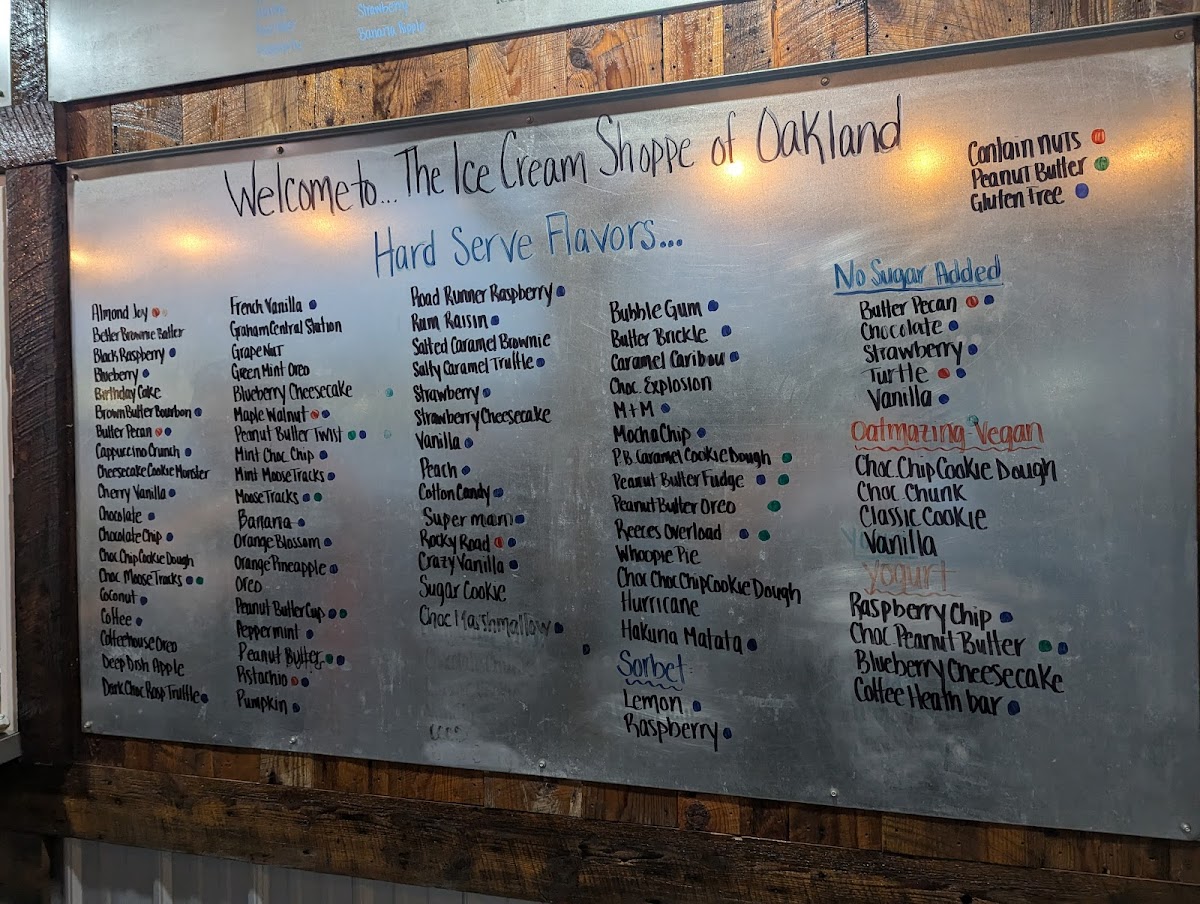 Strawberry
Banana Apple
Welcome to... The Ice Cream Shoppe of Oakland
Contain nuts
Peanut Butter
Gluten Free
Hard Serve Flavors...
Almond Joy
Better Brownie Batter
Black Raspberry
Blueberry
Birthday Cake
Brown Butter Bourbon
Butter Pecan
Cappuccino Crunch
Cheesecake Cookie Monster
Cherry Vanilla
Chocolate
Chocolate Chip
Choc Chip Cookie Dough
Choc Moose Tracks
Coconut
Coffee
Coffeehouse Oreo
Deep Dish Apple
Dark Choc Rasp Truffle
French Vanilla
Graham Central Station
Grape Nut
Green Mint Oreo
Blueberry Cheesecake
Maple Walnut
Peanut Butter Twist
Mint Choc Chip
Mint Moose Tracks
Moose Tracks
Banana
Orange Blossom
Orange Pineapple
Oreo
Peanut Butter Cup
Peppermint
Peanut Butter
Pistachio
Pumpkin
Road Runner Raspberry
Rum Raisin
Salted Caramel Brownie
Salty Caramel Truffle
Strawberry
Strawberry Cheesecake
Vanilla
Peach
Cotton Candy
Super man
Rocky Road
Crazy Vanilla
Sugar Cookie
Choc Marshmallow
Bubble Gum
Butter Brickle
Caramel Caribou
Choc. Explosion
M+M
Mocha Chip
P.B. Caramel Cookie Dough
Peanut Butter Fudge
Peanut Butter Oreo
Reeces Overload
Whoopie Pie
Choc Choc Chip Cookie Dough
Hurricane
Hakuna Matata
Sorbet
Lemon
Raspberry
No Sugar Added
Butter Pecan
Chocolate
Strawberry
Turtle
Vanilla
Oatmazing-Vegan
Choc. Chip Cookie Dough
Choc. Chunk
Classic Cookie
Vanilla
Yogurt
Raspberry Chip
Choc Peanut Butter
Blueberry Cheesecake
Coffee Heath bar